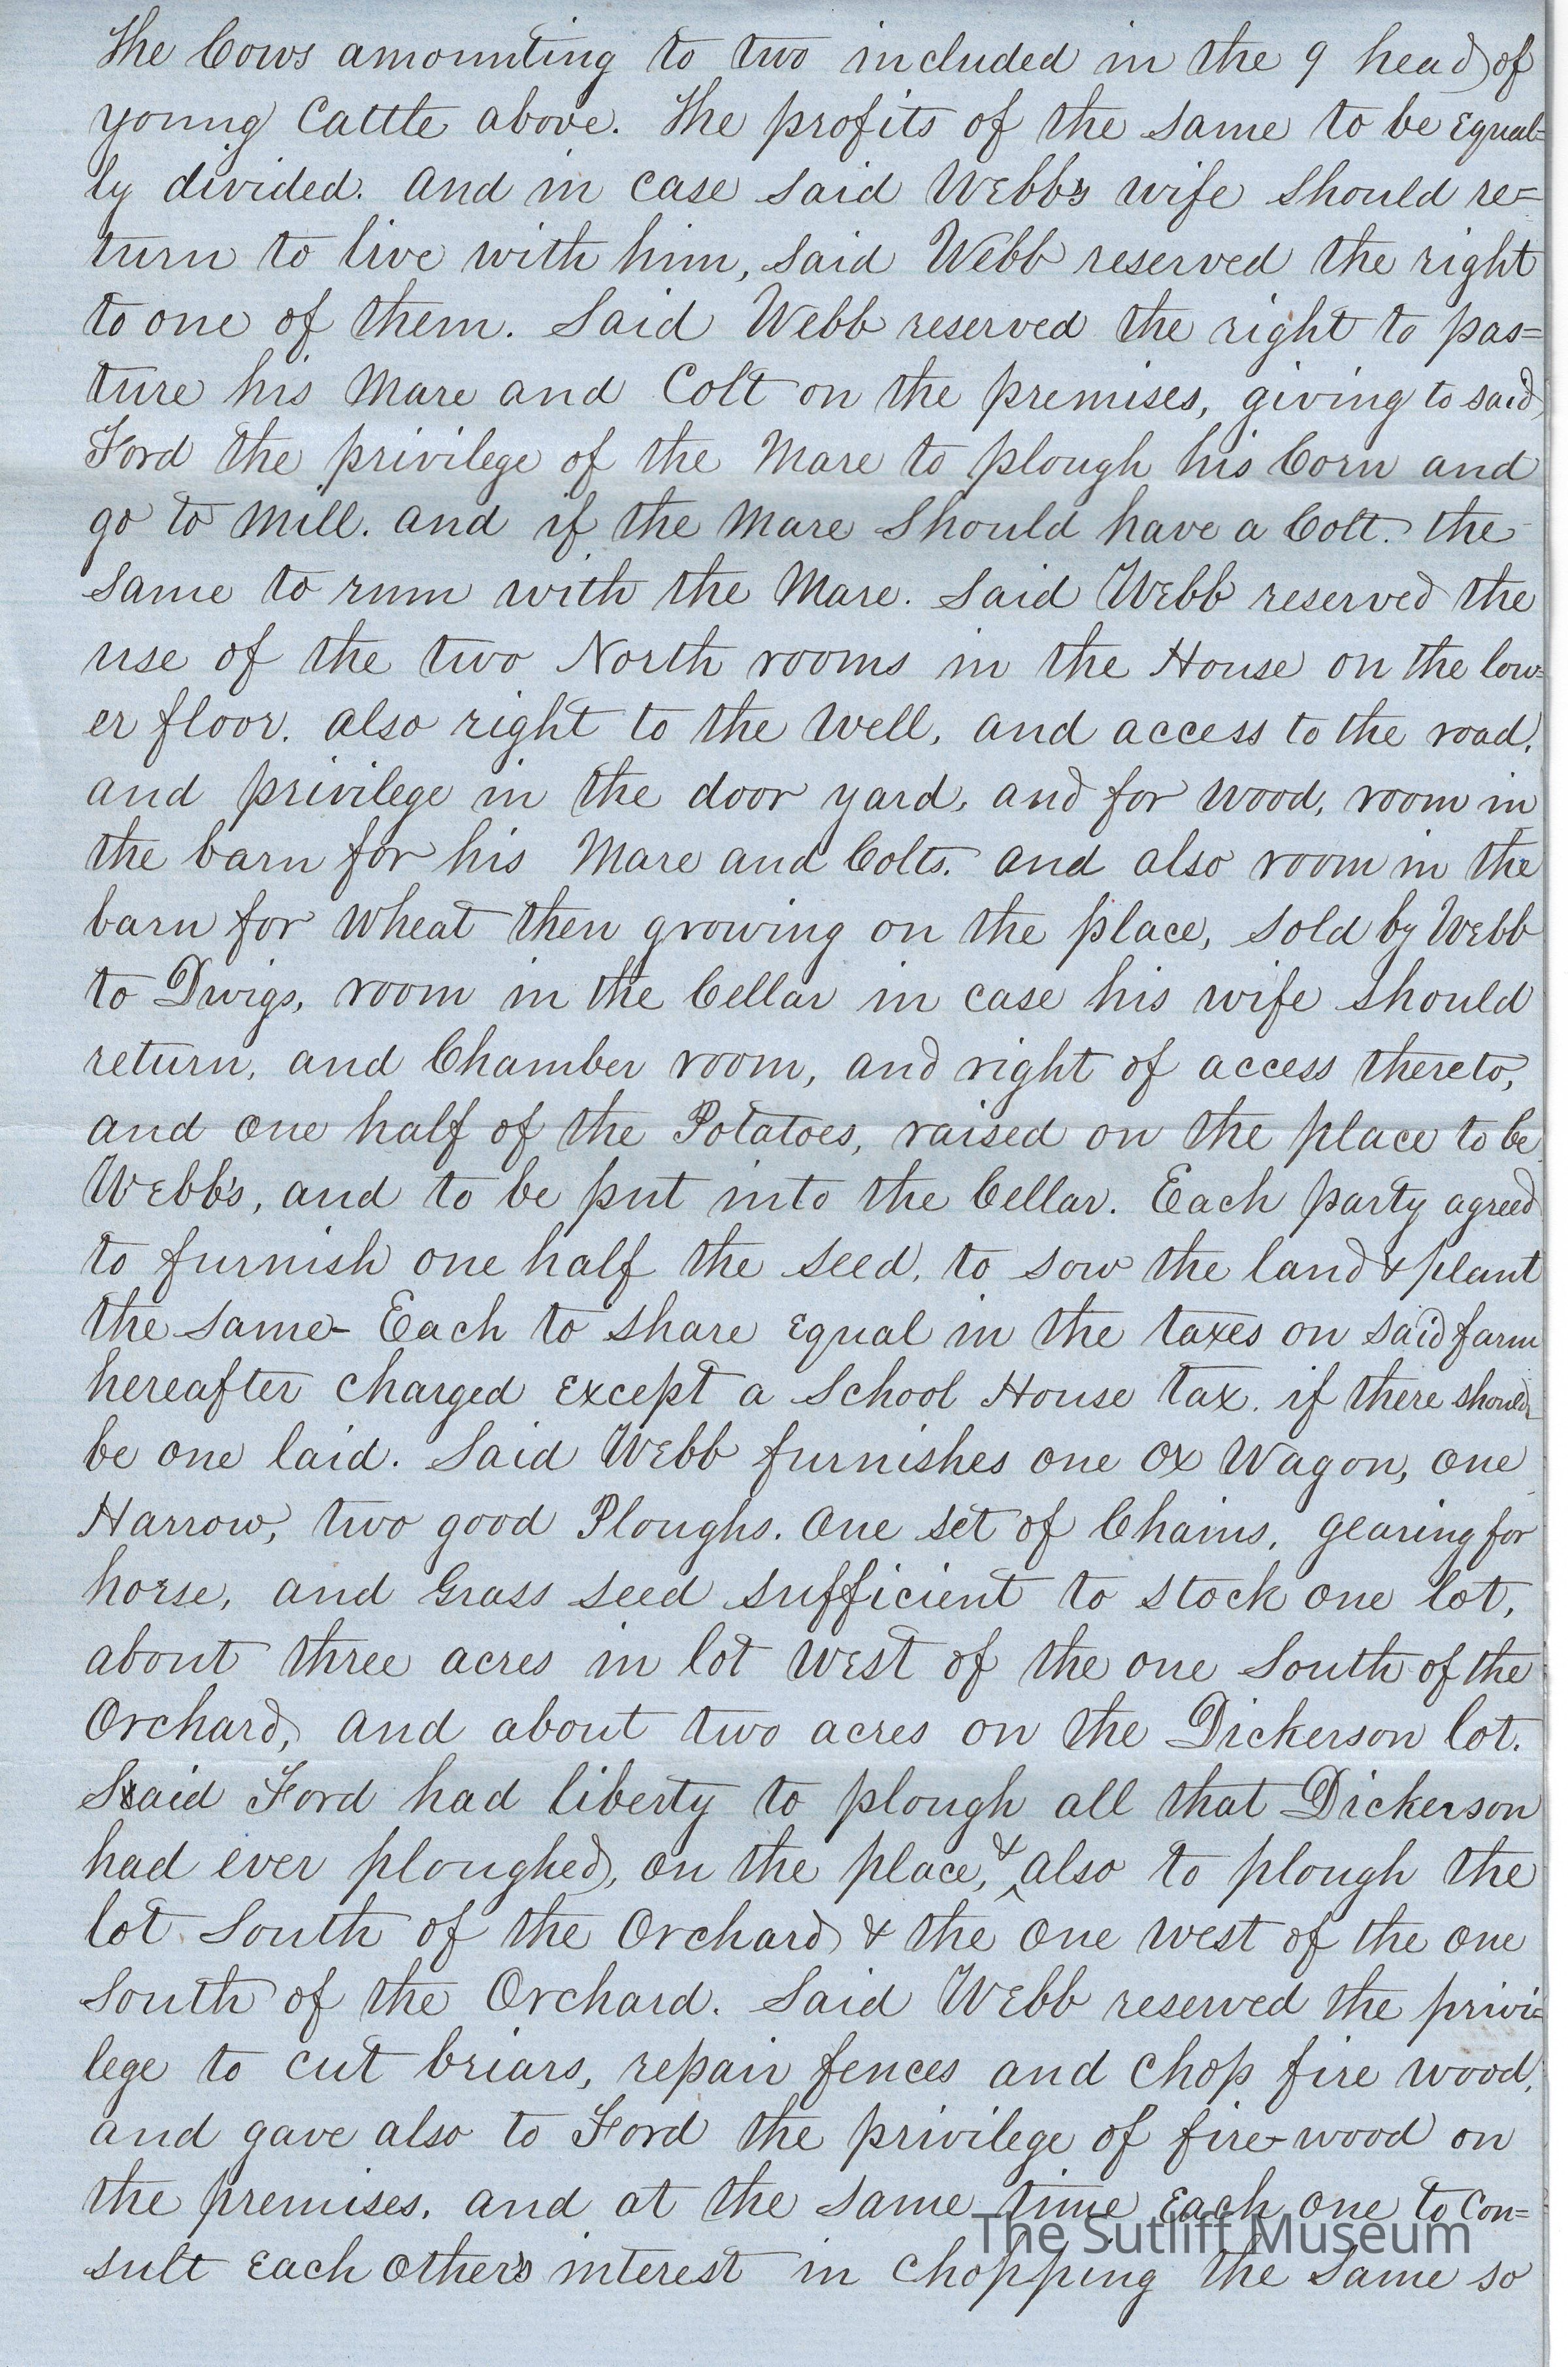 The Cows amounting to two included in the 9 head of
young Cattle above. The profits of the same to be Equal=
ly divided. and in case said Webb's wife should re=
turn to live with him, said Webb reserved the right
to one of them. Said Webb reserved the right to pas=
ture his Mare and Colt on the premises, giving to said
Ford the privilege of the Mare to plough his Corn and
go to Mill. and if the Mare should have a Colt. the
same to run with the Mare. Said Webb reserved the
use of the two North rooms in the House on the low=
er floor. also right to the Well, and access to the road,
and privilege in the door yard, and for wood, room in
the barn for his Mare and Colts. and also room in the
barn for Wheat then growing on the place, sold by Webb
to Dwigs, room in the Cellar in case his wife should
return, and Chamber room, and right of access thereto,
and one half of the Potatoes, raised on the place to be
Webb's, and to be put into the Cellar. Each party agreed
to furnish one half the seed, to sow the land & plant
the same - Each to share Equal in the taxes on said farm
hereafter charged Except a School House tax. if there should
be one laid. Said Webb furnishes one Ox Wagon, one
Harrow, two good Ploughs. One set of Chains, gearing for
horse, and Grass seed sufficient to stock one lot,
about three acres in lot West of the one South of the
Orchard, and about two acres on the Dickerson lot.
Said Ford had liberty to plough all that Dickerson
had ever ploughed, on the place, & also to plough the
lot South of the Orchard & the One west of the one
South of the Orchard. Said Webb reserved the privi=
lege to cut briars, repair fences and chop fire wood,
and gave also to Ford the privilege of fire-wood on
the premises. and at the same time Each one to con=
The Sutliff Museum
sult Each other's interest in chopping the same so